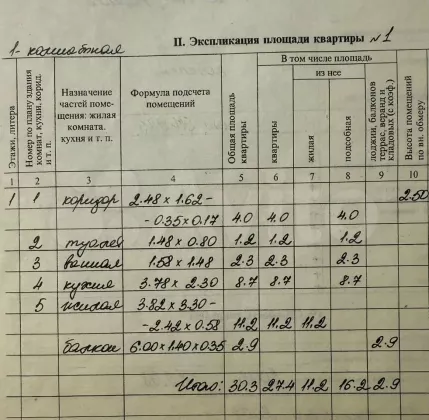 II. Экспликация площади квартиры №1
1-комнатная
Этажи, литера
Номер по плану здания комнат, кухни. корид. и т. п.
Назначение частей поме-щения: жилая комната. кухня и т. п.
Формула подсчета помещений
Общая площадь квартиры
В том числе площадь
квартиры
из нее
жилая
подсобная
лоджии, балконов террас, веранд и кладовых (с коэф.)
Высота помещений по вн. обмеру
1 2 3 4 5 6 7 8 9 10
1 1 коридор 2.48 x 1.62 - 2.50
- 0.35 x 0.17 4.0 4.0 4.0
2 туалет 1.48 x 0.80 1.2 1.2 1.2
3 ванная 1.58 x 1.48 2.3 2.3 2.3
4 кухня 3.78 x 2.30 8.7 8.7 8.7
5 жилая 3.82 x 3.30 -
- 2.42 x 0.58 11.2 11.2 11.2
балкон 6.00 x 1.40 x 0.35 2.9 2.9
Итого: 30.3 27.4 11.2 16.2 2.9